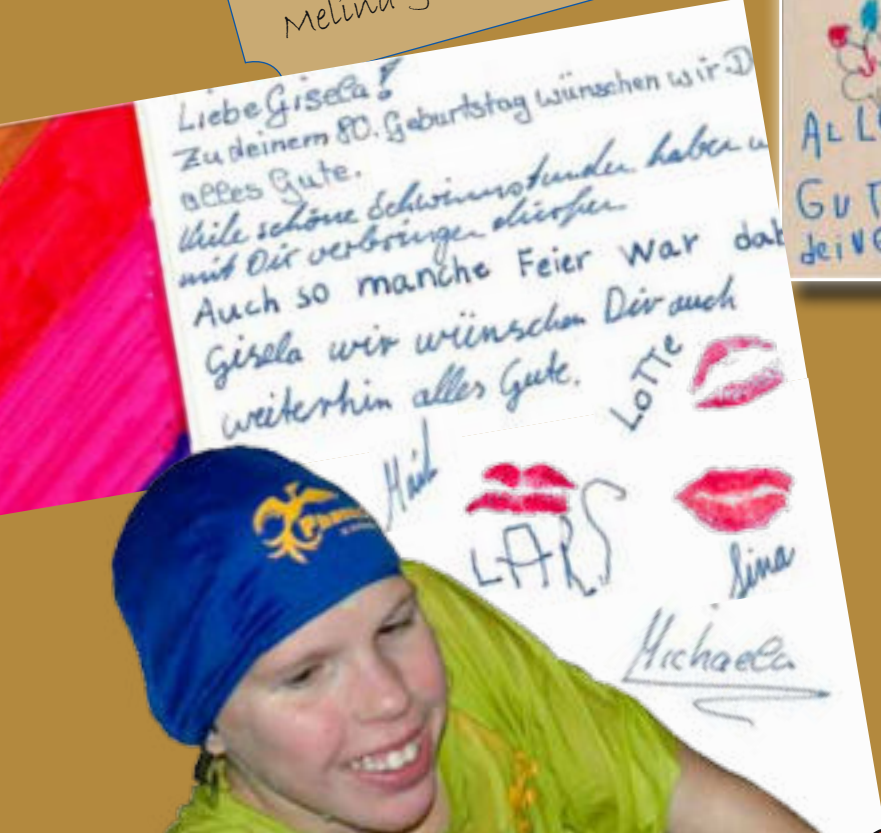 Melina
Liebe Gisela!
Zu deinem 80. Geburtstag wünschen wir D
alles Gute.
Viele schöne Schwimmstunden haben w
mit Dir verbringen dürfen
Auch so manche Feier war dab
Gisela wir wünschen Dir auch
weiterhin alles Gute.
LOTTE
LARS
Sina
Michaela
ALL
GUT
deiNe